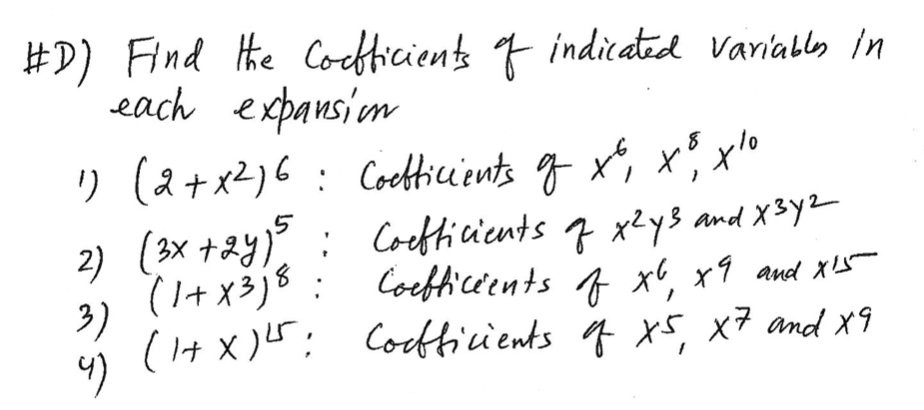 #D) Find the Coefficients of indicated variables in
each expansion
1) (2 + x²)⁶ : Coefficients of x⁶, x⁸, x¹⁰
2) (3x + 2y)⁵ : Coefficients of x²y³ and x³y²
3) (1 + x³)⁸ : Coefficients of x⁶, x⁹ and x¹⁵
4) (1 + x)¹⁵ : Coefficients of x⁵, x⁷ and x⁹